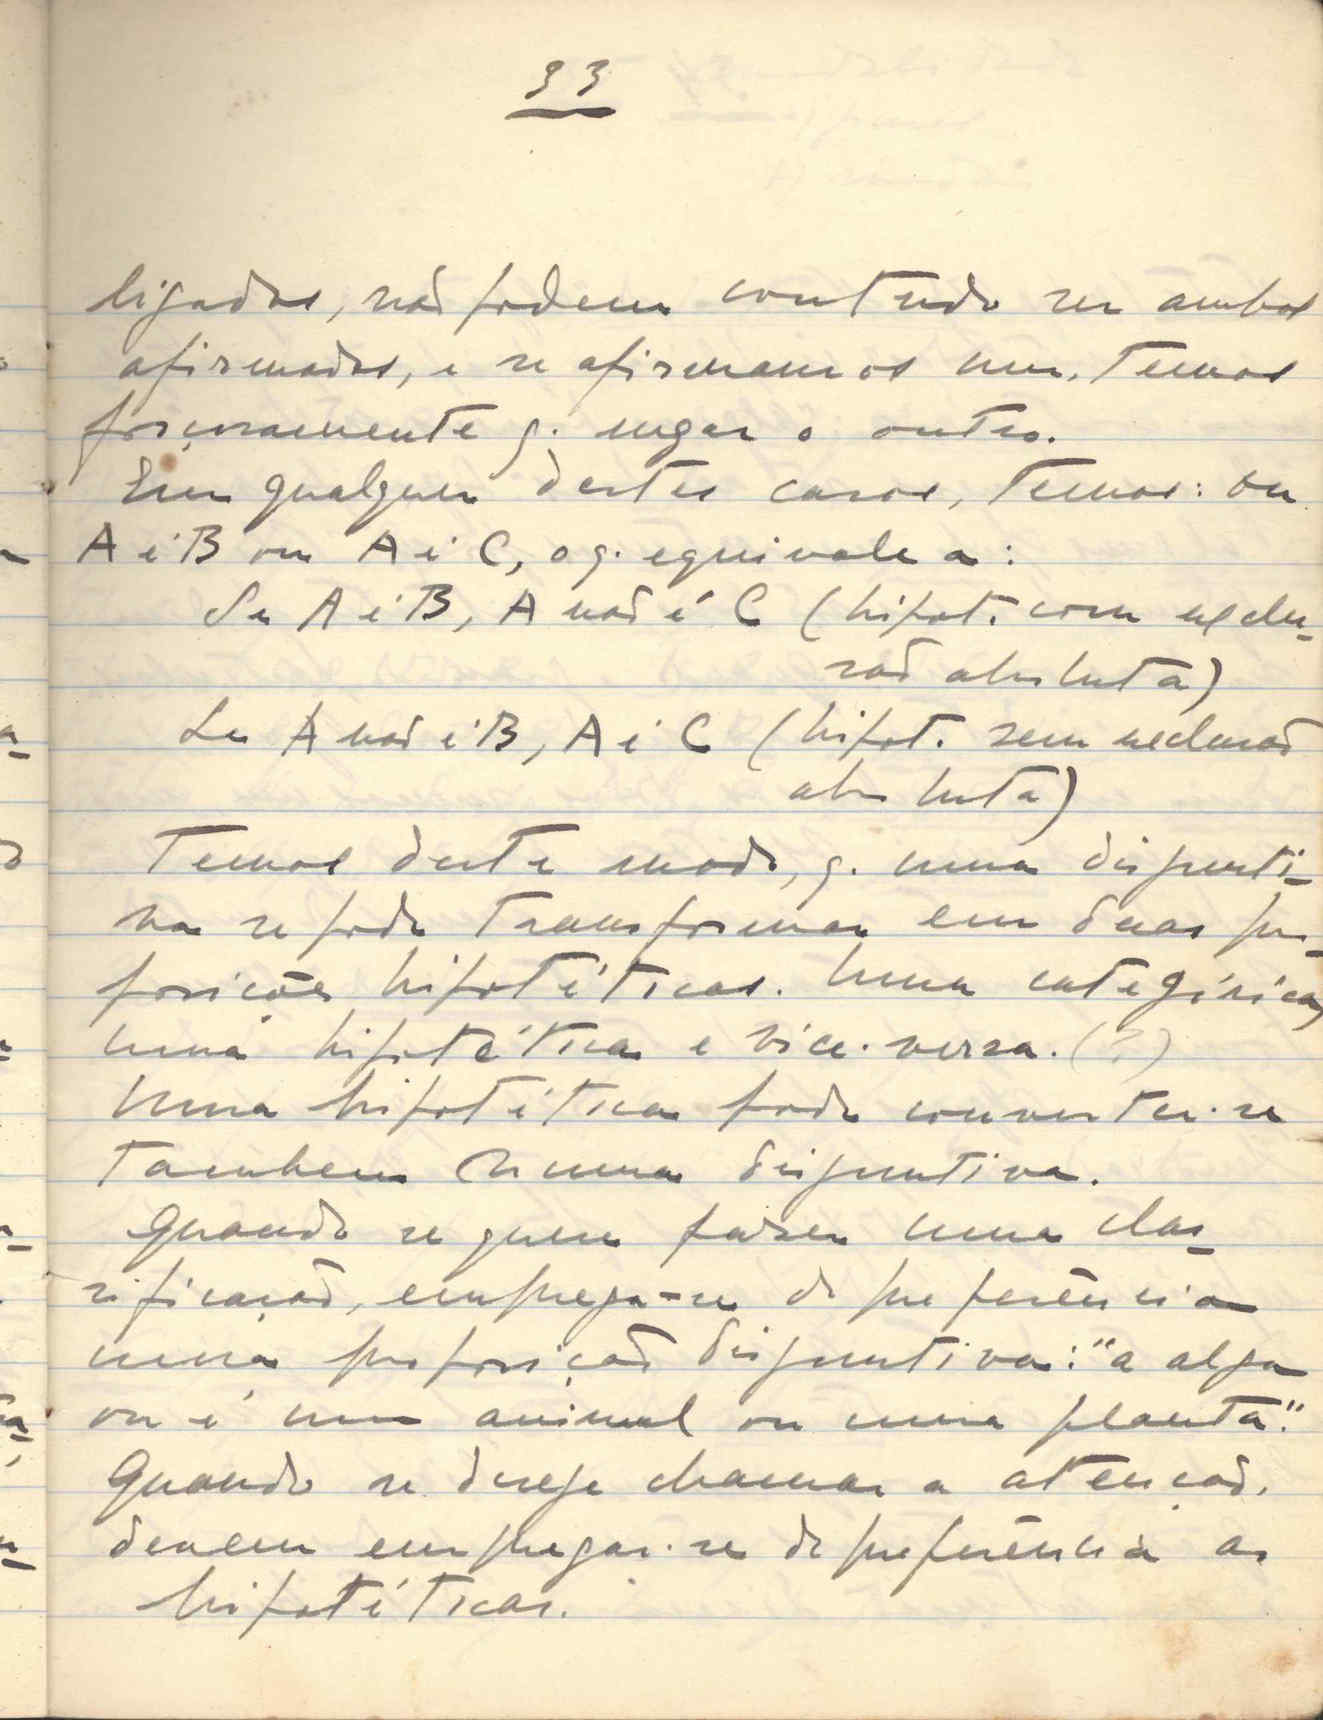 33
ligados, não podem contudo ser ambos
afirmados, e se afirmamos um, temos
forçosamente q. negar o outro.
Em qualquer destes casos, temos: ou
A é B ou A é C, o q. equivale a:
Se A é B, A não é C (hipot. com exclu-
são absoluta)
Se A não é B, A é C (hipot. sem exclusão
absoluta)
Temos deste modo, q. uma disjunti-
va se pode transformar em duas pro-
posições hipotéticas. Uma categórica,
numa hipotética e vice-versa. (?)
Uma hipotética pode converter-se
tambem numa disjuntiva.
Quando se quere fazer uma clas-
sificação, emprega-se de preferência
uma proposição disjuntiva: "a alga
ou é um animal ou uma planta".
Quando se deseja chamar a atenção,
devem empregar-se de preferência as
hipotéticas.